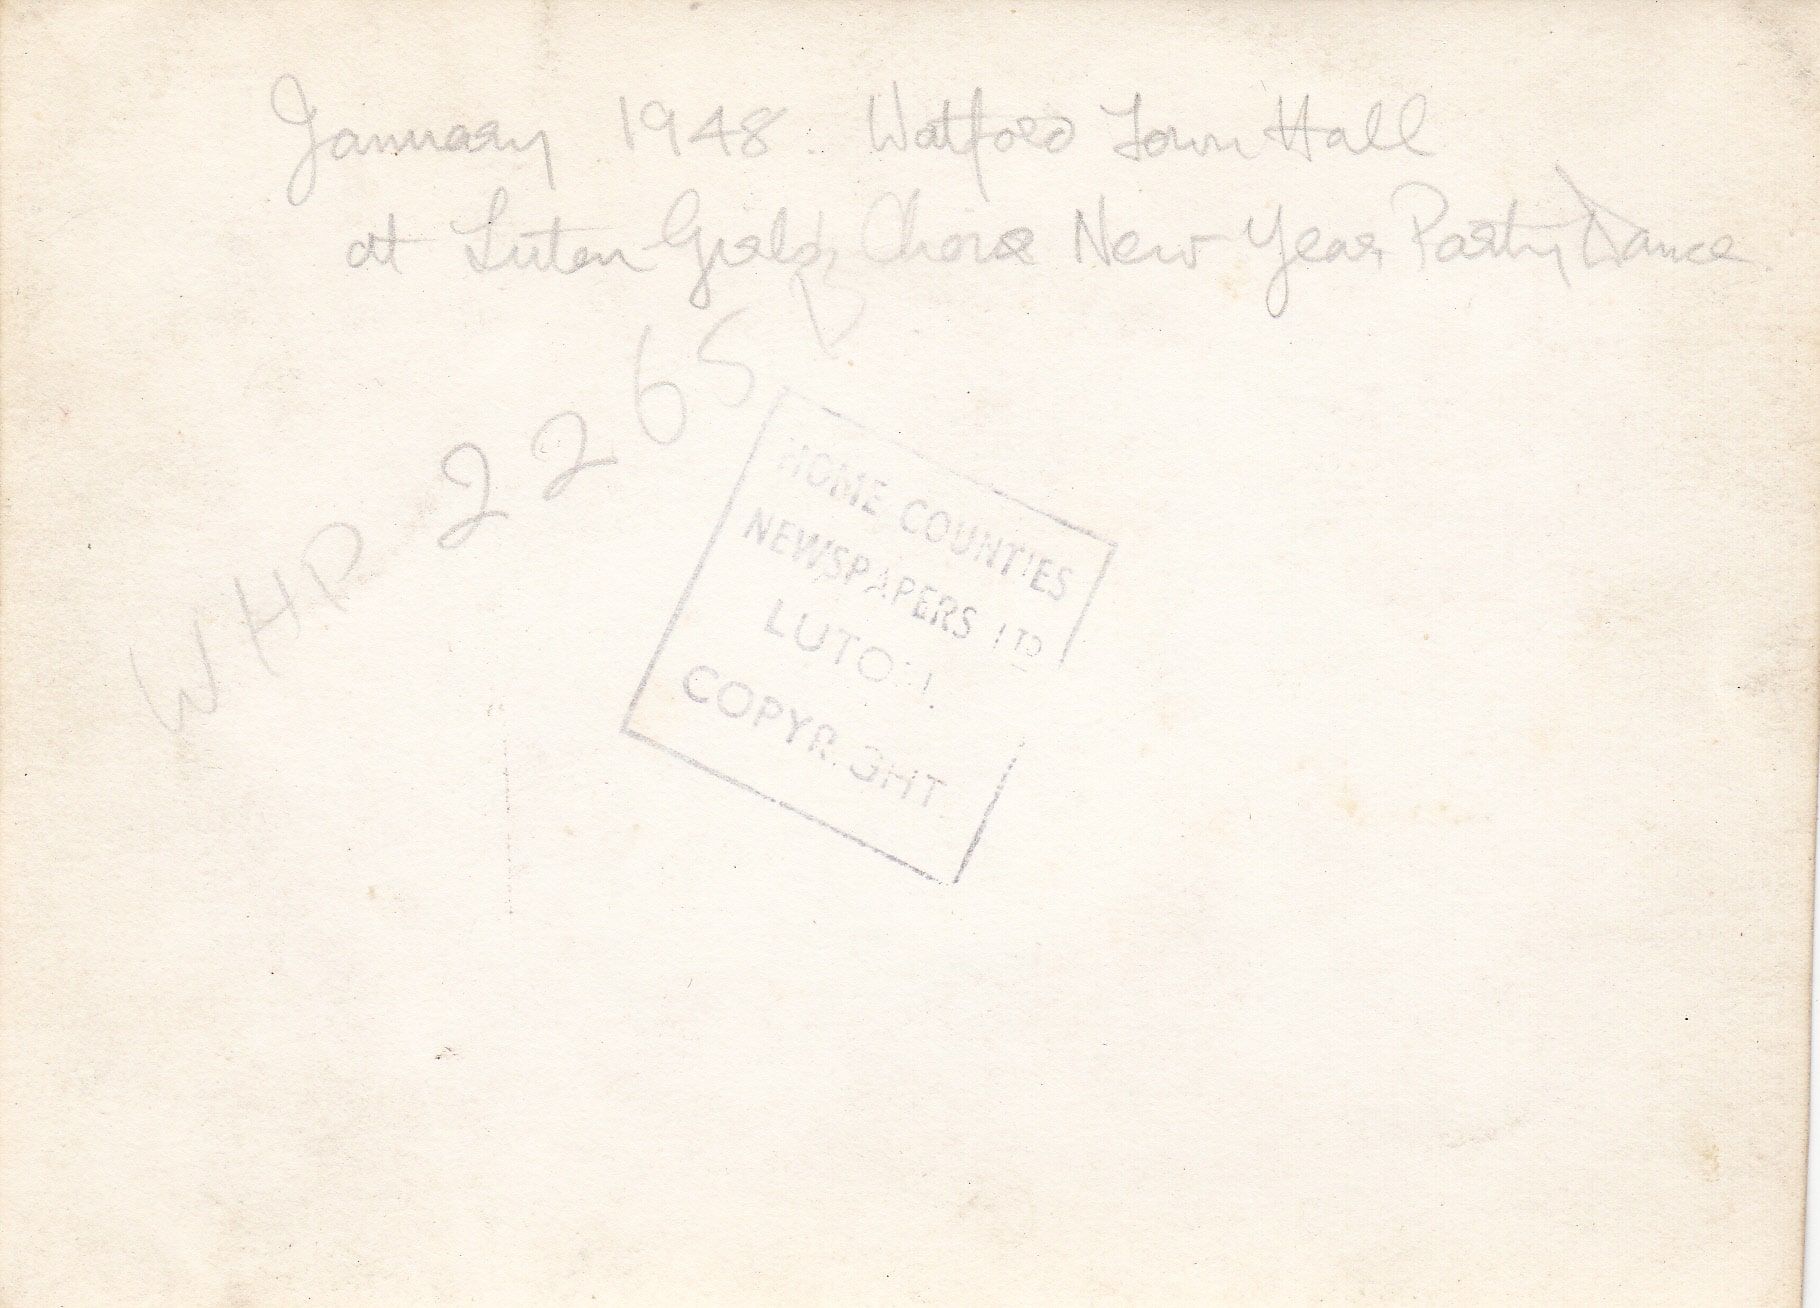 January 1948. Watford Town Hall
at Luton Girls Choir New Year Party Dance.
WHP 2265 B
HOME COUNTIES
NEWSPAPERS LTD
LUTON.
COPYRIGHT